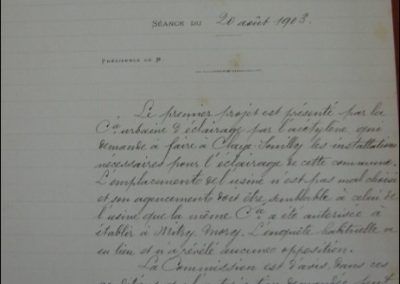 SÉANCE DU 20 août 1903.
PRÉSIDENCE DE M
Le premier projet est présenté par la
Cie urbaine d'éclairage par l'acétylène qui
demande à faire à Claye Souilly les installations
nécessaires pour l'éclairage de cette commune.
L'emplacement de l'usine n'est pas mal choisi
et son agencement doit être semblable à celui de
l'usine que la même Cie a été autorisée à
établir à Mitry Mory. L'enquête habituelle a
eu lieu et n'a révélé aucune opposition.
La Commission est d'avis, dans ces